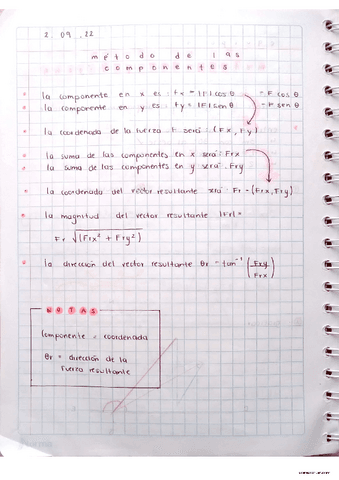 2 09 . 22
método de las
componentes
la componente en x es : Fx = |F| cos θ = F cos θ
la componente en y es : Fy = |F| sen θ = F sen θ
la coordenada de la fuerza F será : (Fx, Fy)
la suma de las componentes en x será : Frx
la suma de las componentes en y será : Fry
la coordenada del vector resultante será Fr = (Frx, Fry)
la magnitud del vector resultante |Fr| =
Fr √(Frx² + Fry²)
la dirección del vector resultante θr = tan⁻¹ (Fry / Frx)
NOTAS
componente = coordenada
θr = dirección de la
fuerza resultante